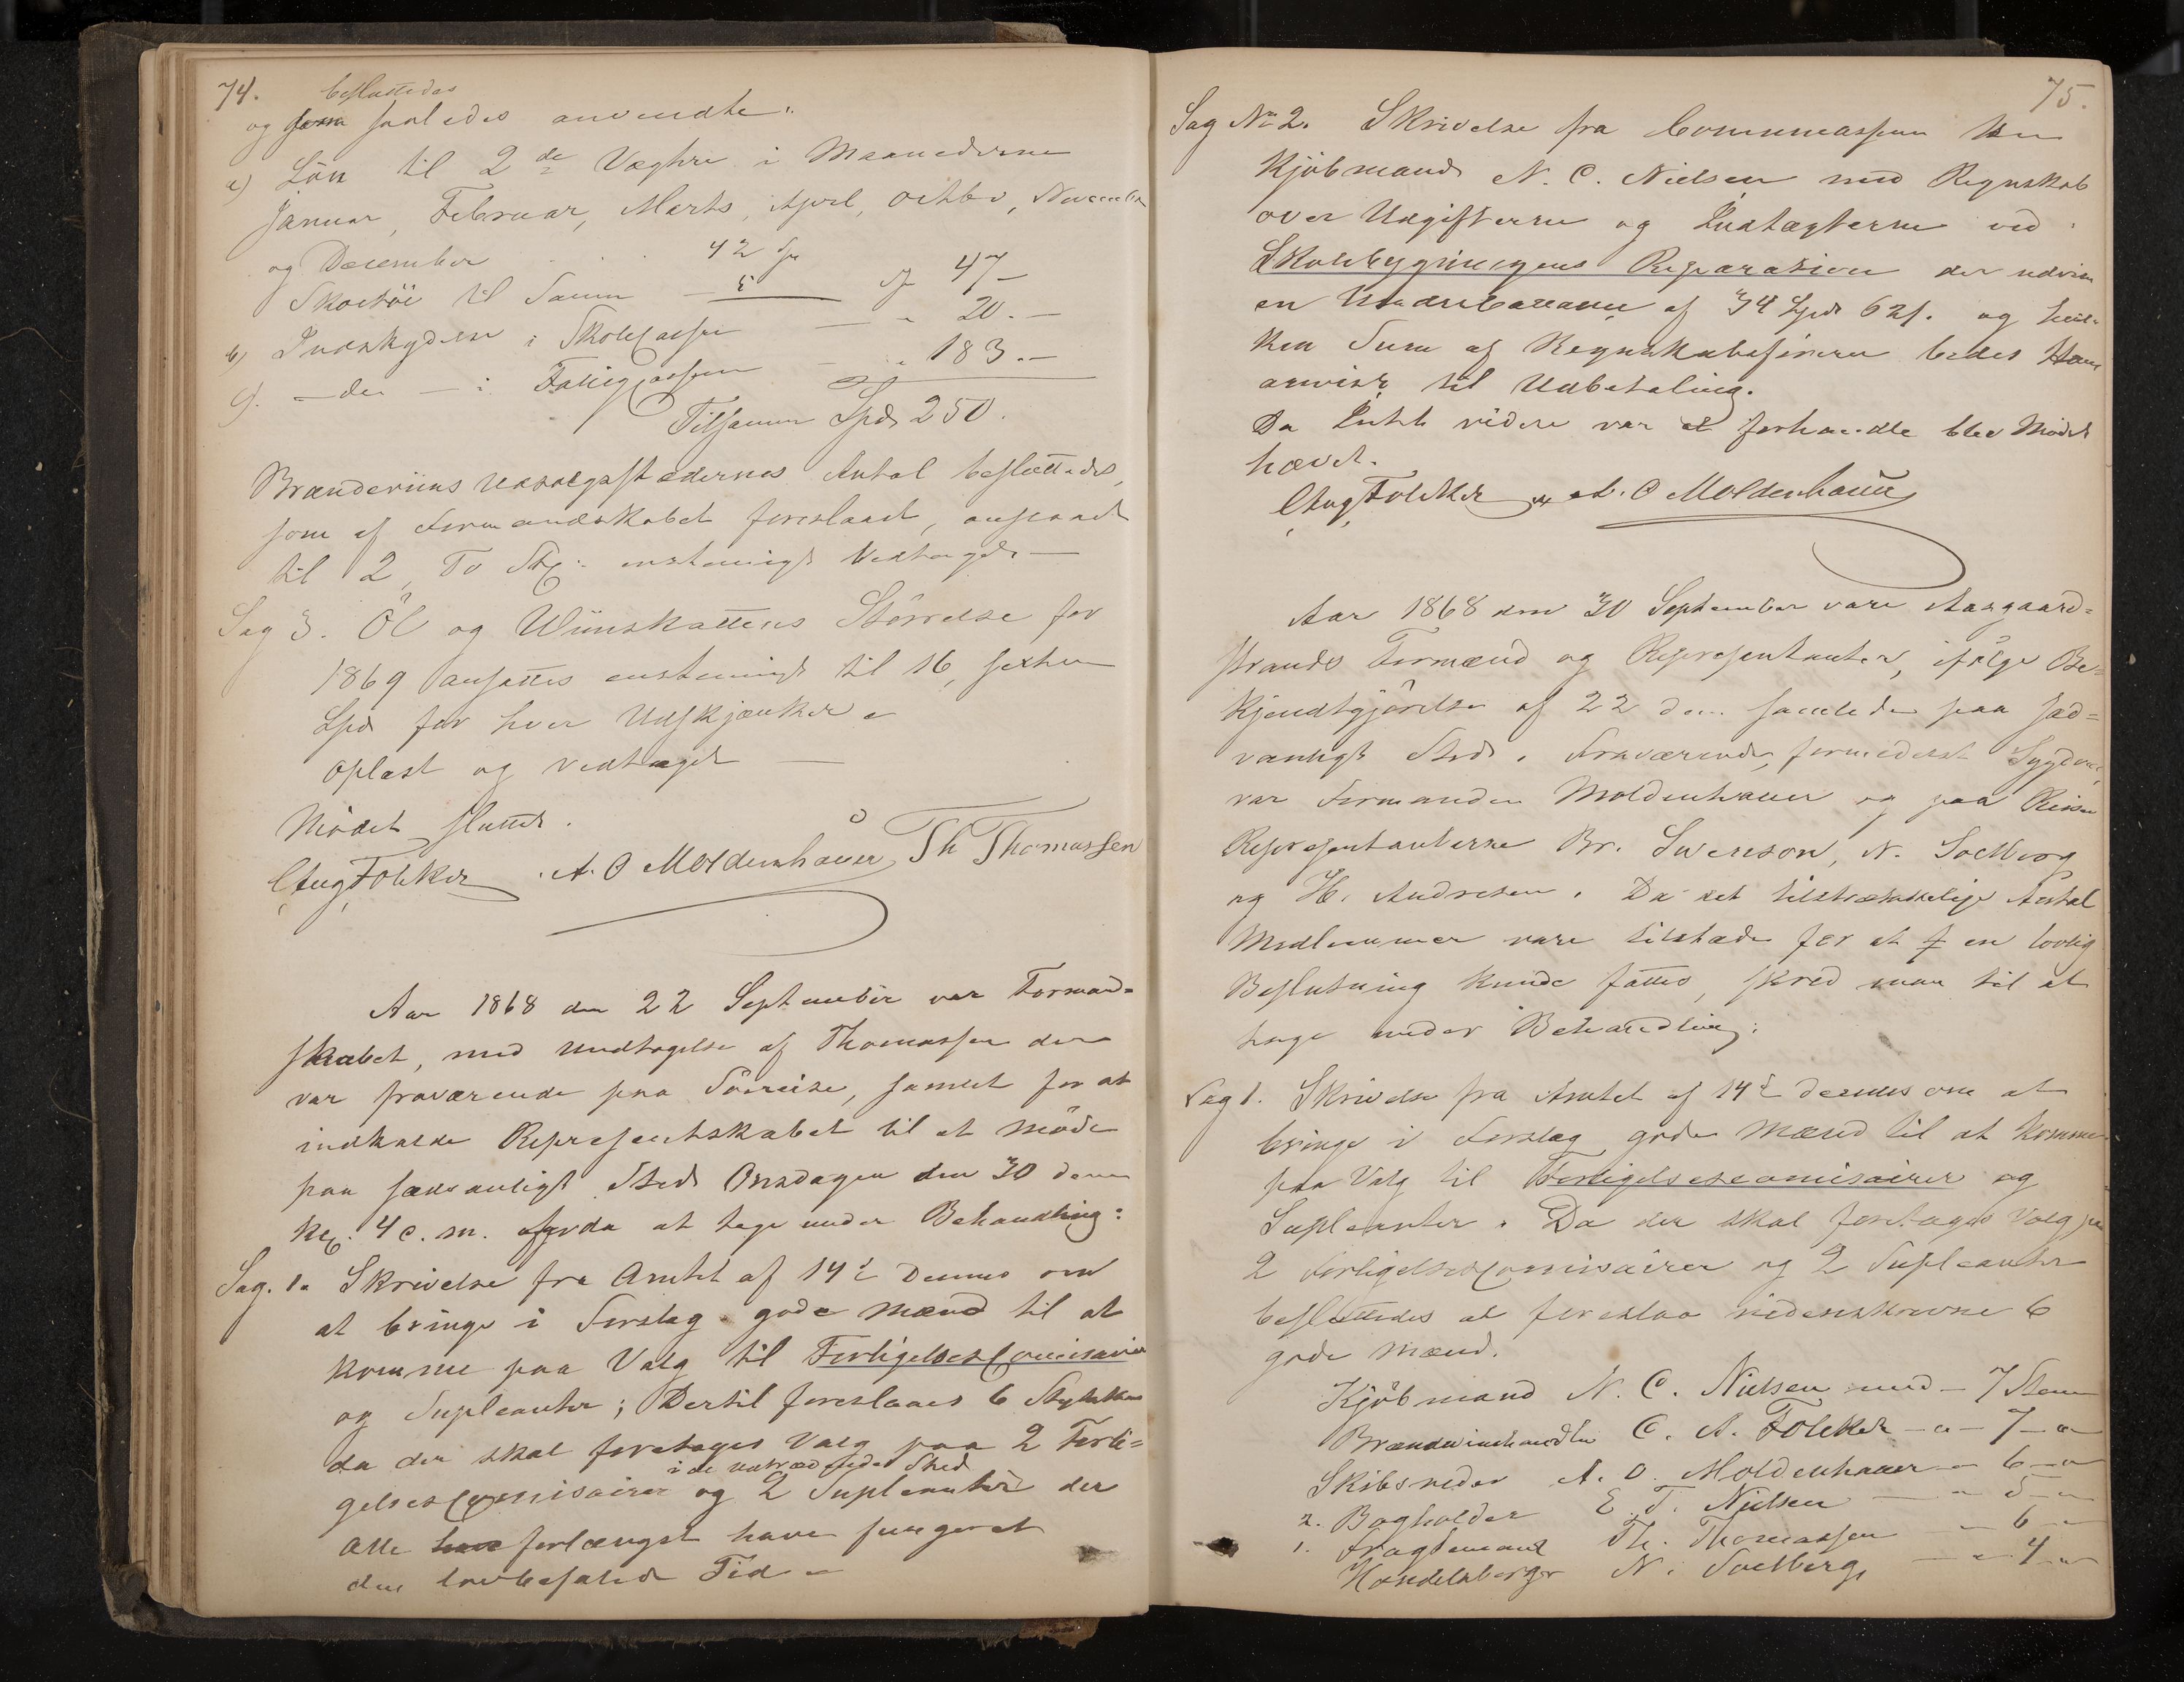 74.
besluttedes
og som saaledes anvendte:
a) Løn til 2de Vægtere i Maanederne
Januar, Februar, Marts, April, Octbr, November
og December . . . 42 Sp
Skoetøi til Samme — 5 Sp 47 —
b) Indskydelse i Skolecassen — " 20. —
c). — do — i Fattigcassen — " 183. —
Tilsammen Spd 250.
Brændeviins Udsalgsstædernes Antal besluttedes,
som af Formandskabet foreslaaet, ansaaet
til 2, To Stk: enstemigt Vedtaget —
Sag 3. Öl og Viinskattens Störrelse for
1869 ansattes enstemmigt til 16, sexten
Spd for hver Udskjænker
Oplæst og vedtaget —
Mödet sluttet.
C Aug Folcker A. O Moldenhauer Th Thomassen
Aar 1868 den 22 September var Formand-
skabet, med Undtagelse af Thomassen der
var fraværende paa Söreise, samlet for at
indkalde Repræsentskabet til et möde
paa sædvanligt Sted Onsdagen den 30 dennes
Kl. 4 e. m. for da at tage under Behandling:
Sag. 1. Skrivelse fra Amtet af 14de Dennes om
at bringe i Forslag gode Mænd til at
komme paa Valg til Forligelsescomisairer
og Supleanter; Dertil foreslaaes 6 Stykker
da der skal foretages Valg paa 2 Forli-
i de udtrædendes Sted
gelsescomisairer og 2 Supleanter der
Alle have forlængst have fungeret
den lovbefalede Tid
75.
Sag No 2. Skrivelse fra Communecassereren Herr
Kjöbmand N. C. Nielsen med Regnskab
over Udgifterne og Indtægterne ved
Skolebygningens Reparasion der udviser
en Underballance af 34 Spd 62 s. og hvil-
ken Sum af Regnskabsföreren bedes Ham
anvist til Udbetaling.
Da Intet videre var at forhandle blev Mödet
hævet.
C Aug Folcker A. O Moldenhauer
Aar 1868 den 30 September vare Aasgaard-
strands Formænd og Repræsentanter, ifölge Be-
kjendtgjörelse af 22 den samlede paa sæd-
vanligt Sted. Fraværende, formedelst Sygdom,
var Formanden Moldenhauer og paa Reise
Repræsentanterne Br. Svenson, N. Soelberg
og H. Andresen. Da det tilstrækkelige Antal
Medlemmer vare tilstæde for at f en lovlig
Beslutning kunde fattes, skred man til at
tage under Behandling:
Sag 1. Skrivelse fra Amtet af 14de dennes om at
bringe i Forslag gode Mænd til at komme
paa Valg til Forligelsescomisairer og
Supleanter. Da der skal foretages Valg paa
2 Forligelsescomisairer og 2 Supleanter
besluttedes at foreslaa nedenskrevne 6
gode Mænd.
Kjöbmand N. C. Nielsen med — 7 Stem
Brændeviinshandler C. A. Folcker — " — 7 — "
Skibsreder A. O. Moldenhauer — " 6 — "
2. Bogholder E. T. Nielsen — " 5 — "
1. Fragtemand Th. Thomassen — " 6 — "
Handelsborger N. Soelberg — " 4 — "